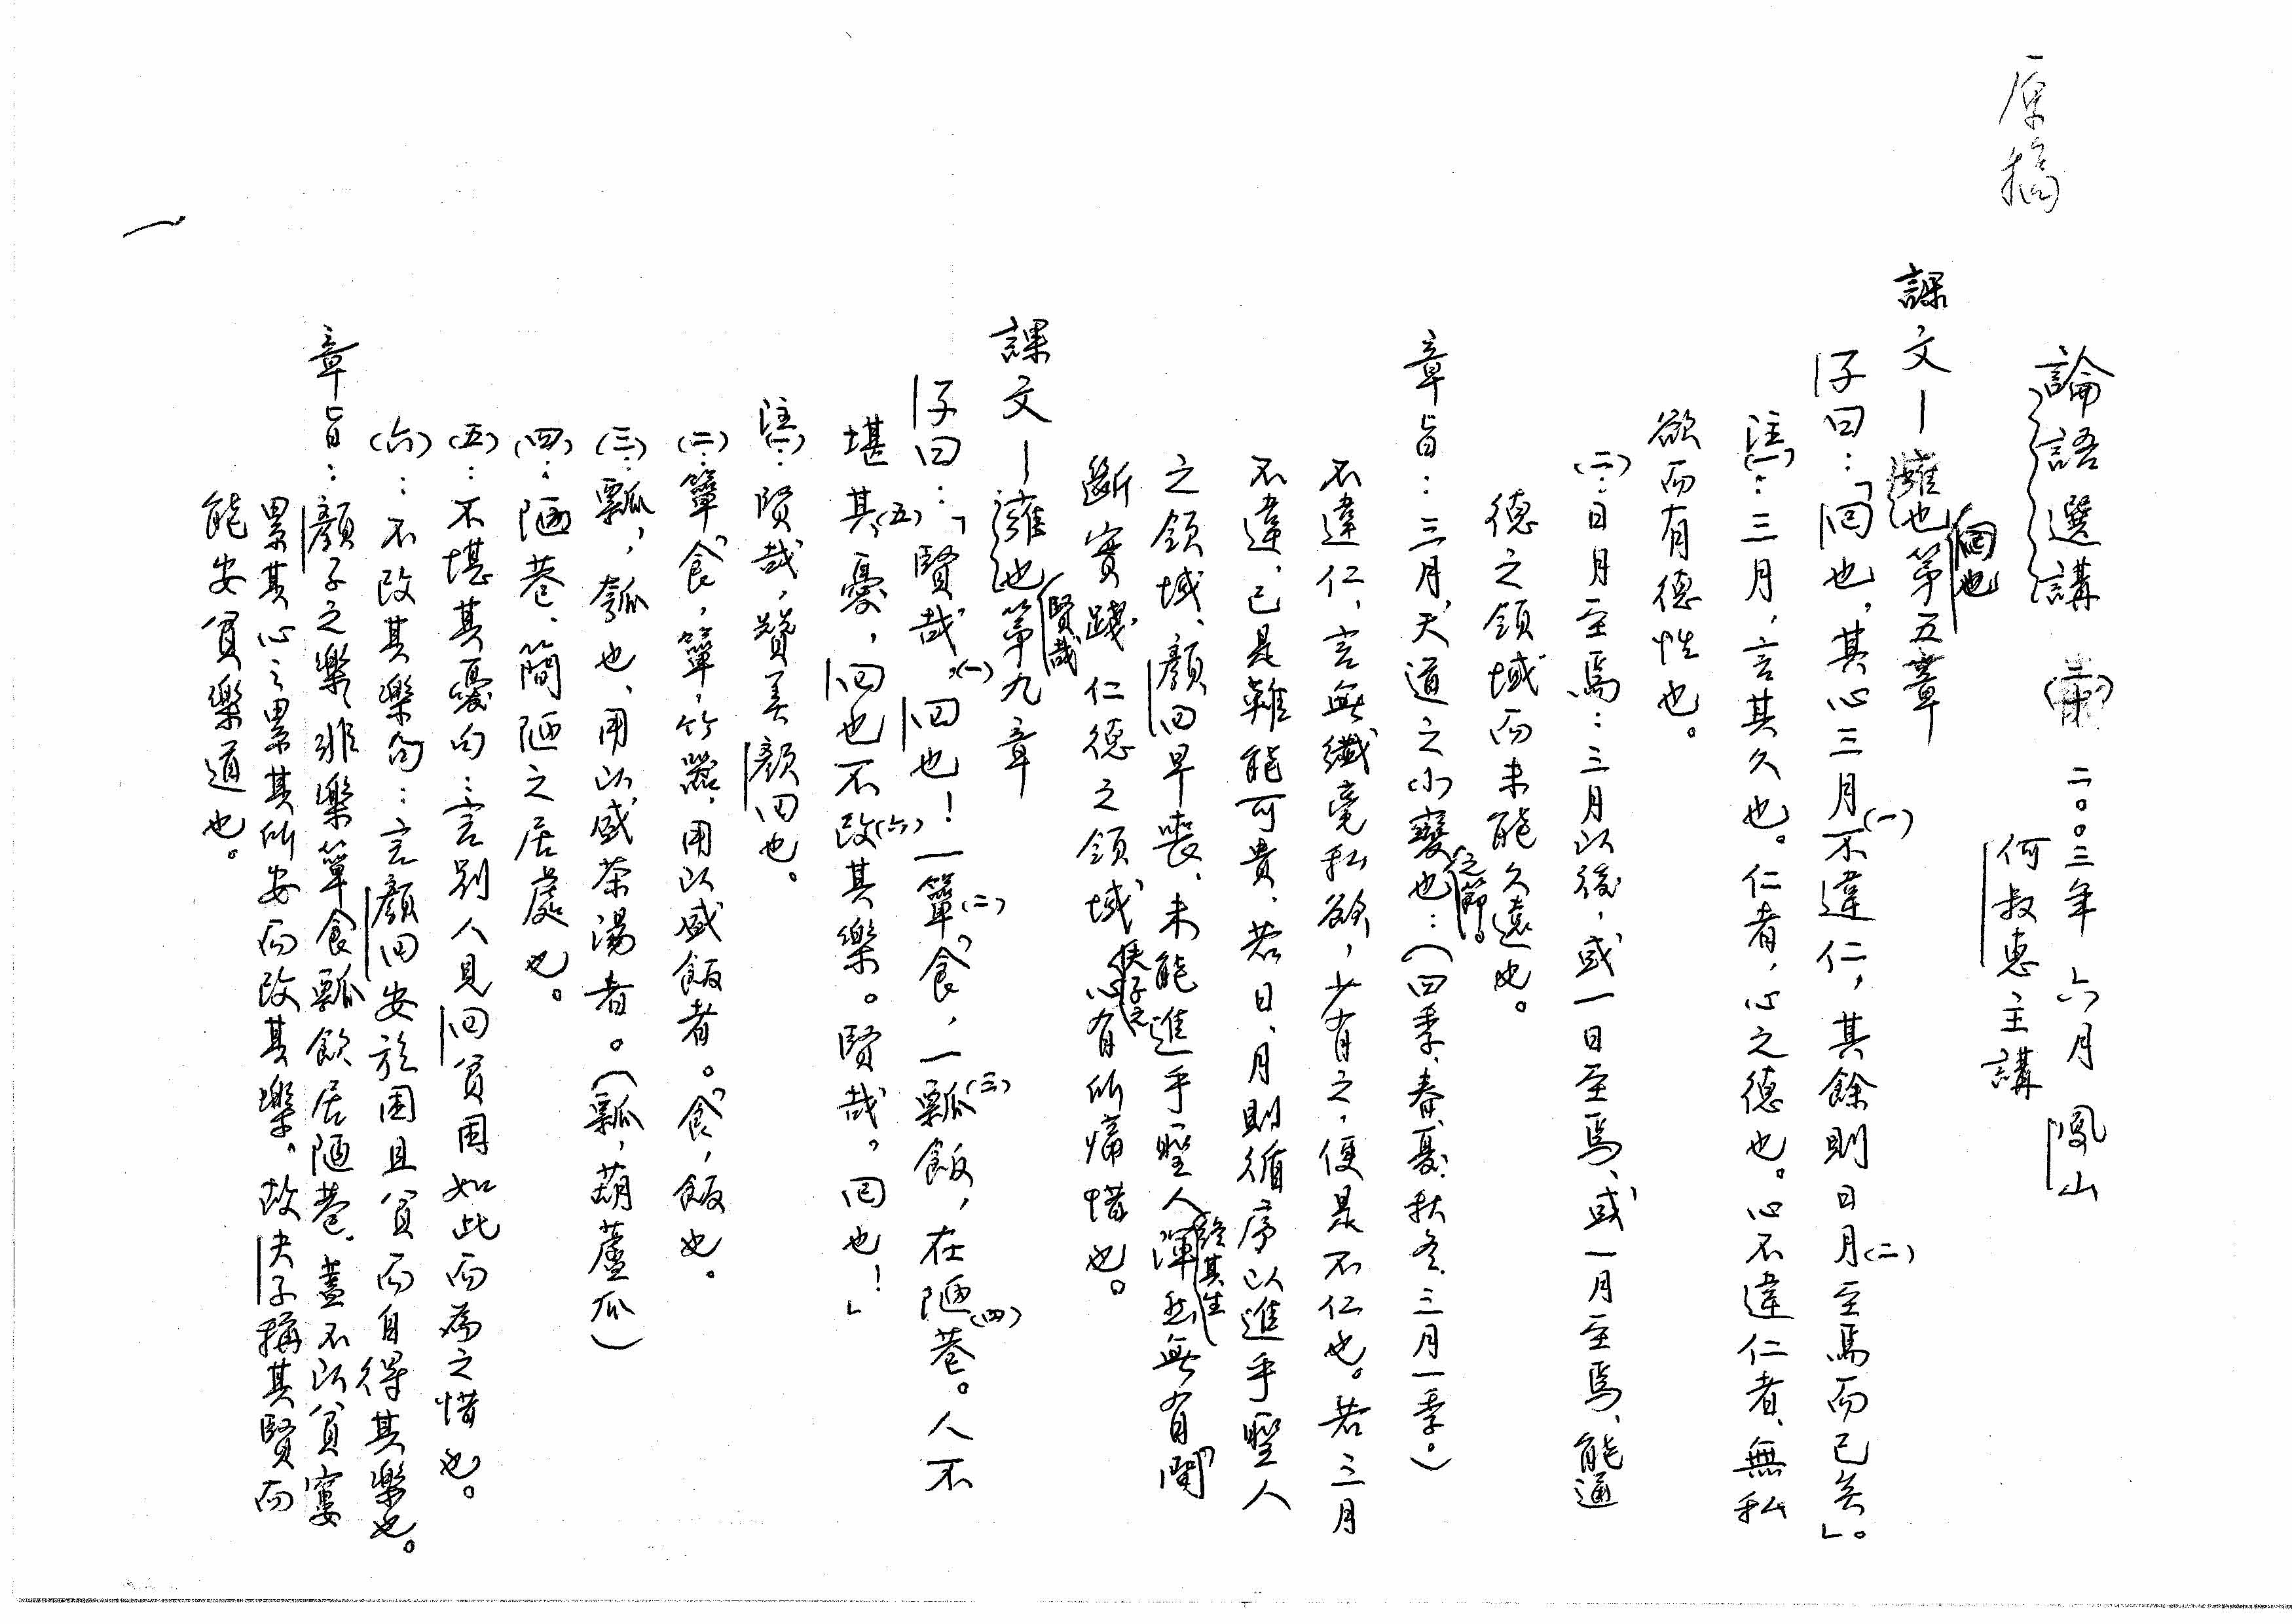 原稿
論語選講 二００三年 六月 鳳山
何叔惠主講
回也
課文－雍也第五章
子曰：「回也，其心三月(一)不違仁，其餘則日月(二)至焉而已矣」。
注(一)：三月，言其久也。仁者，心之德也。心不違仁者、無私
欲而有德性也。
(二)：日月至焉：三月以後，或一日至焉、或一月至焉、能通
德之領域而未能久遠也。
章旨：三月、天道之小變之節也：（四季、春、夏、秋、冬、三月一季。）
不違仁、言無纖毫私欲，少有之，便是不仁也。若三月
不違，已是難能可貴，若日、月則循序以進乎聖人
之領域、顏回早喪、未能進乎聖人渾然無有間
終其生
斷實踐仁德之領域，夫子之心有所痛惜也。
賢哉
課文－雍也第九章
子曰：「賢哉，(一)回也！一簞(二)食，一瓢(三)飯，在陋(四)巷。人不
堪其(五)憂，回也不改(六)其樂。賢哉，回也！」
注(一)：賢哉，贊美顏回也。
(二)：簞食，簞，竹器、用以盛飯者。食，飯也。
(三)：瓢，瓠也、用以盛茶湯者。（瓢，葫蘆瓜）
(四)：陋巷、簡陋之居處也。
(五)：不堪其憂句：言別人見回貧困如此而為之惜也。
(六)：不改其樂句：言顏回安於困且貧而自得其樂也。
章旨：顏子之樂，非樂簞食瓢飲居陋巷，蓋不以貧窶
累其心之累其所安而改其樂。故夫子稱其賢而
能安貧樂道也。
一